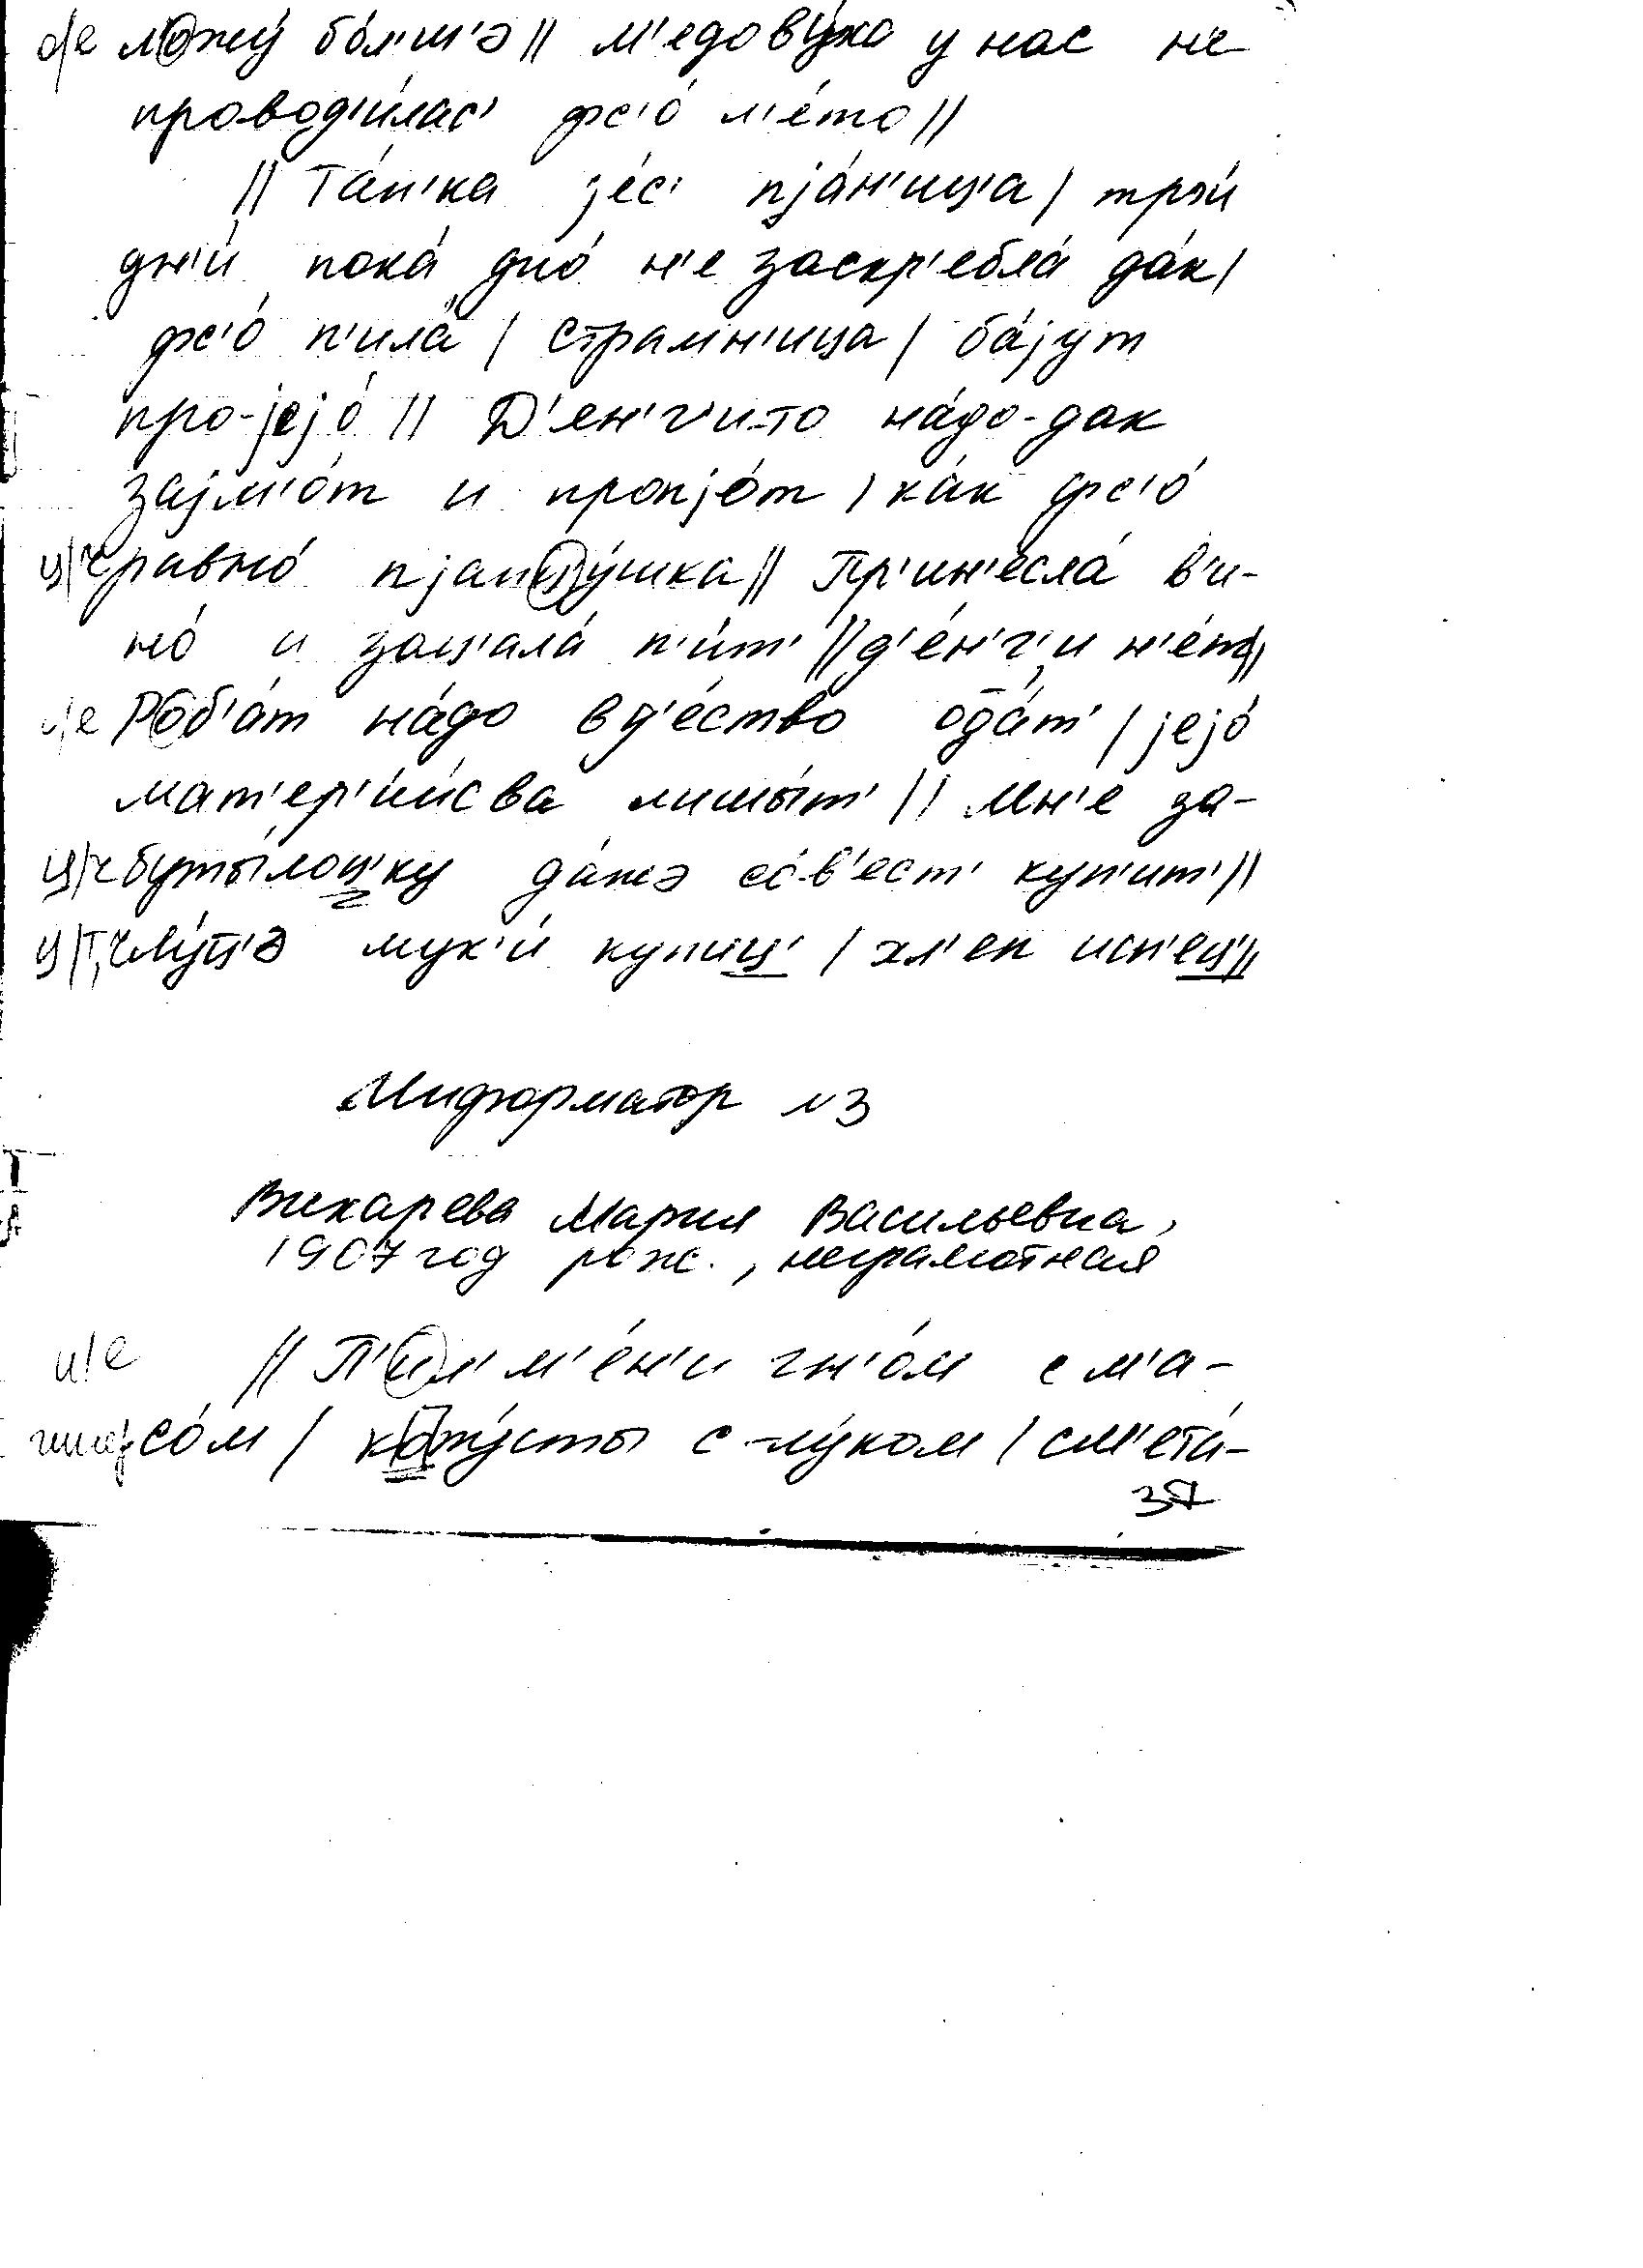 о/е можу́ бо́л'ш'э || м'едову́ха у нас не
проводи́лас' фс'о́ л'е́то ||
|| Та́н'ка з'ес' пjа́н'иц'а | тр'и́
дн'и́ пока́ дно́ н'е заскр'ебла́ да́к |
фс'о́ п'ила́ | страмн'ица | ба́jут
про-jejо́ || Д'ен'г'и-то на́до-дак
заjм'о́т и пропjо́т | ка́к фс'о́
ц/ч равно́ пjанц'у́шка || Пр'ин'есла́ в'и-
но́ и зац'ала́ п'и́т' || д'е́н'г'и н'е́т ||
о/е Роб'а́т на́до в д'е́ство ода́т' | jejо́
мат'ер'и́нсва лишы́т' || Мн'е за-
ц/ч буты́лоц'ку да́жэ со́в'ест' куп'ит' ||
ц/т,ч лу́ц'э мук'и́ купиц' | хл'еп исп'ец' ||
Информатор №3
Вихарева Мария Васильевна,
1907 год рож., неграмотная
и/е || П'ил'м'е́н'и гн'о́м с м'а-
со́м | копу́сты с лу́ком | см'ета́-
37